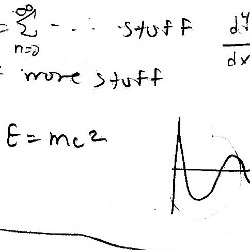 = ∞ Σ n=0 - . . . stuff dy/dx
= more stuff
E = mc2